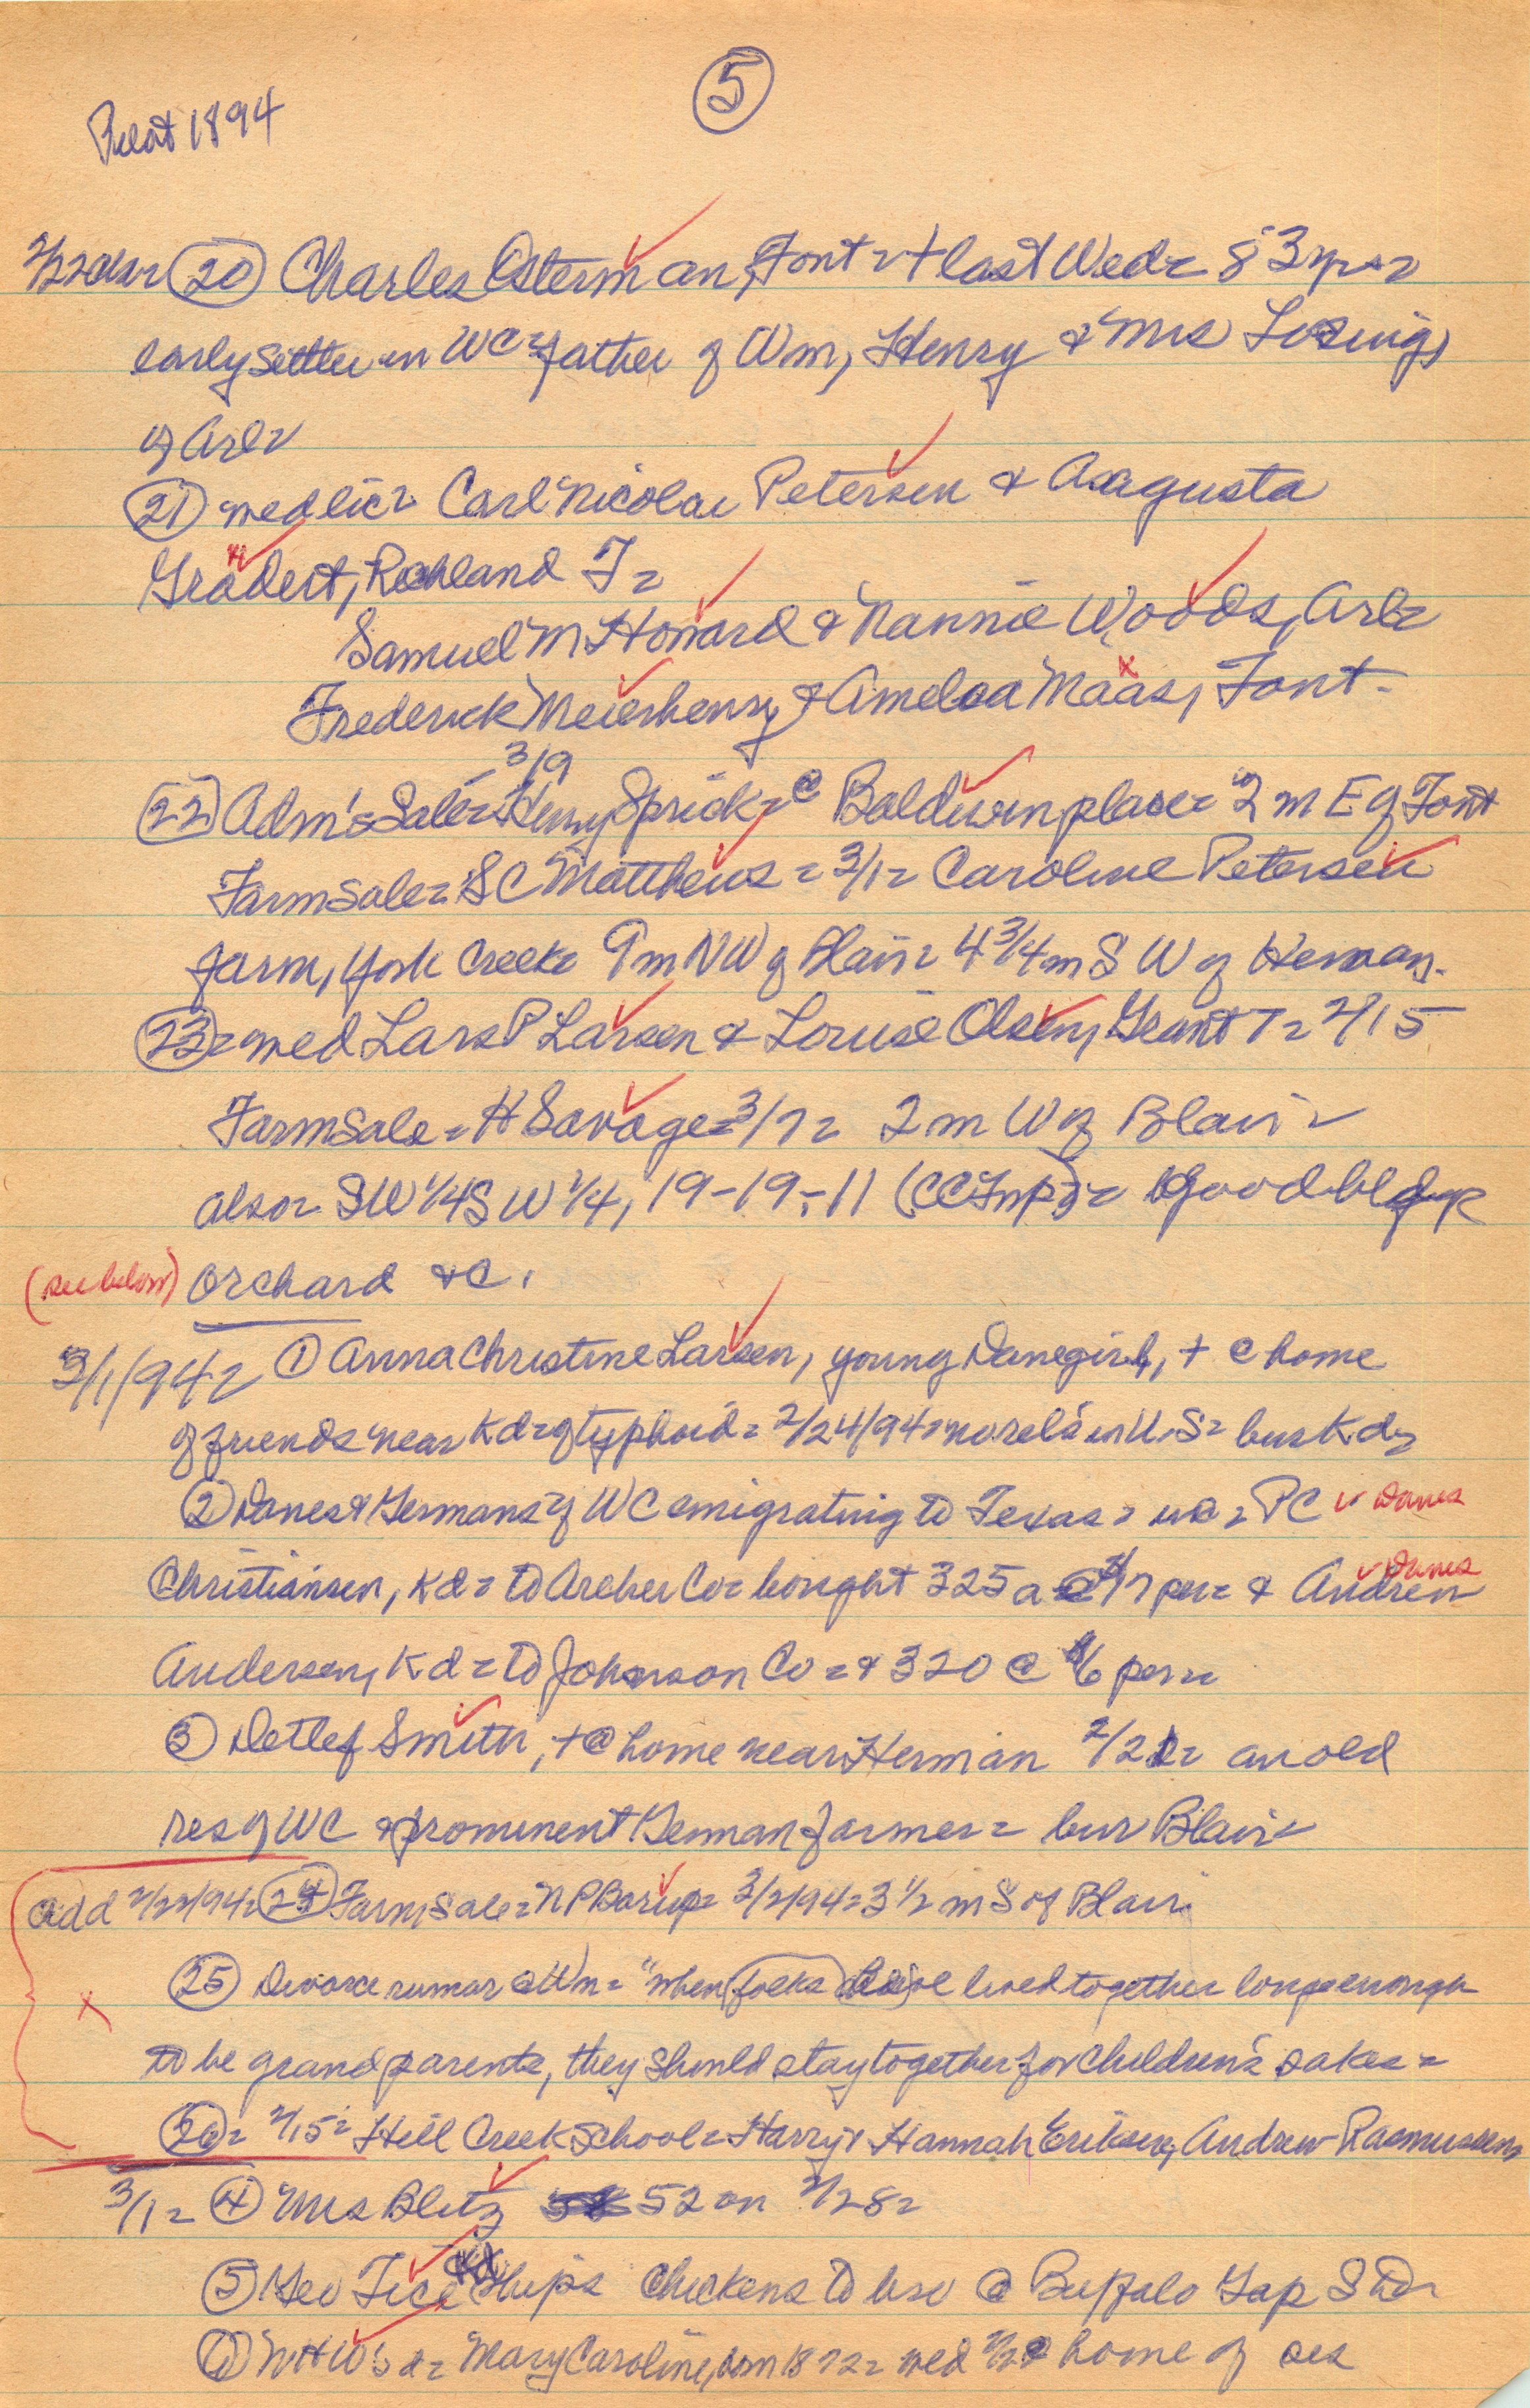 5
Pilot 1894
2/22 also (20) Charles Osterman, Font = + last Wed = 83 yrs =
early settler in WC = father of Wm, Henry & Mrs
of Arl =
(21) wed lic = Carl Nicolai Petersen & Augusta
Gradert, Richland T =
Samuel M Howard & Nannie Woods, Arl =
Frederick Meierhenry & Amelia Maas, Font -
3/9
(22) Adm's Sale = Henry Sprick = @ Baldwin place = 2 m E of Font
Farm sale = S C Matthews = 3/1 = Caroline Petersen
farm, York Creek = 9 m NW of Blair = 4 3/4 m S W of Herman.
(23) = wed Lars P Larsen & Louise Olsen, Grant T = 2/15
Farm sale = H Savage = 3/7 = 2 m W of Blair =
also = SW 1/4 S W 1/4, 19-19-11 = good bldgs
(see below) orchard &c.
3/1/94 = (1) Anna Christine Larsen, young Dane girl, + @ home
of friends near Kd = of typhoid = 2/24/94 = no rel's in U.S = bur Kd =
(2) Danes & Germans of WC emigrating to Texas = = PC v Danes
Christiansen, Kd = to Archer Co = bought 325 a @ $7 per = & Andrew v Danes
Andersen, Kd = to Johnson Co = & 320 @ $6 per =
(3) Detlef Smith, + @ home near Herman 2/21 = an old
res of WC & prominent German farmer = bur Blair =
add 2/22/94 = (24) Farm sale = N P Borup = 3/2/94 = 3 1/2 m S of Blair
x (25) Divorce rumor = "when folks have lived together long enough
to be grandparents, they should stay together for children's sakes =
(26) = 2/15 = Hill Creek School = Harry & Hannah Eriksen, Andrew Rasmussen
3/1 = (4) Mrs Bletz 52 on 2/28 =
(5) Geo Fice ships chickens to bro @ Buffalo Gap S D =
W H W's d = Mary Caroline, born 1872 = wed home of